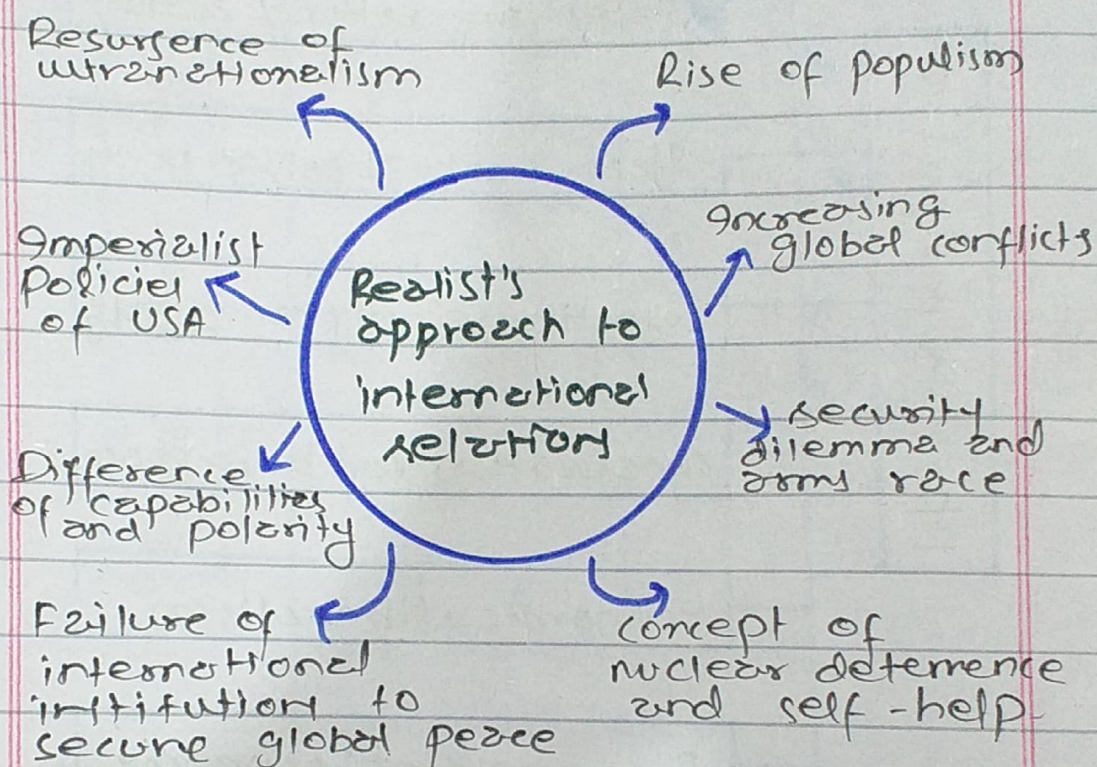 Resurgence of
ultranationalism
Rise of populism
Increasing
global conflicts
Imperialist
Policies
of USA
Realist's
approach to
international
relations
security
dilemma and
arms race
Difference
of capabilities
and polarity
Failure of
international
institution to
secure global peace
concept of
nuclear deterrence
and self-help